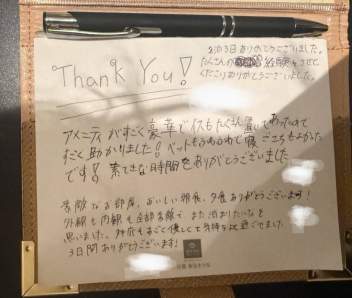 2泊3日ありがとうございました。
たくさんの経験をさせて
くださりありがとうございました。
Thank You!
アメニティがすごく豪華でイスもたくさん置いてあったので
すごく助かりました!ベットもふわふわで寝ごこちもよかった
です!素てきな時間をありがとうございました
素敵なお部屋、おいしい朝食、夕食ありがとうございます!
外観も内観も全部素敵で、また泊まりたいなと
思いました。 もすごく優しくて気持ち良く過ごせました。
3日間ありがとうございます!